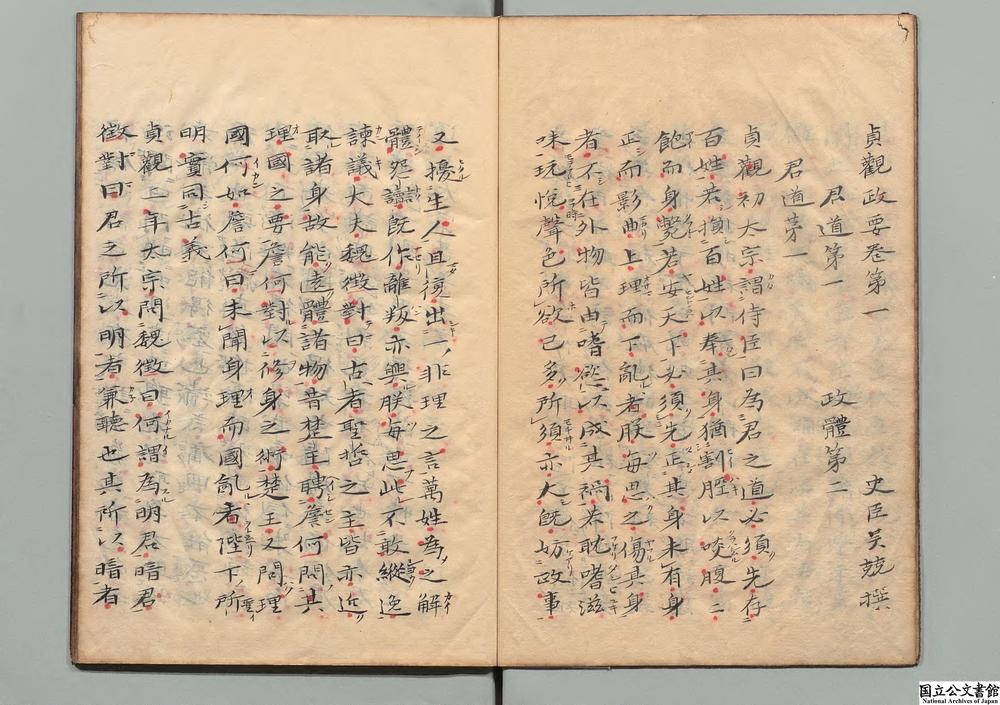 貞觀政要卷第一　史臣吳兢撰
君道第一　政體第二
君道第一
貞觀初太宗謂侍臣曰為君之道必須先存
百姓若損百姓以奉其身猶割脛以啖腹二
飽而身斃若安天下必須先正其身未有身
正而影曲上理而下亂者朕每思之傷其身
者不在外物皆由嗜慾以成其禍若耽嗜滋
味玩悅聲色所欲已多所須亦大既妨政事
又擾生人且復出一非理之言萬姓為之解
體怨讟既作離叛亦興朕每思此不敢縱逸
諫議大夫魏徵對曰古者聖哲之主皆亦近
取諸身故能遠體諸物昔楚王聘詹何問其
理國之要詹何對以修身之術楚王又問理
國何如詹何曰未聞身理而國亂者陛下所
明實同古義
貞觀二年太宗問魏徵曰何謂為明君暗君
徵對曰君之所以明者兼聽也其所以暗者
国立公文書館
National Archives of Japan